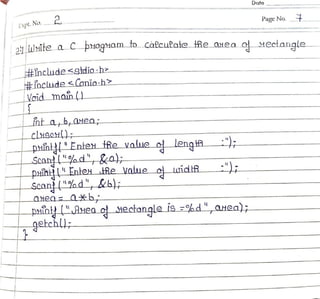 Date
Expt. No. 2
Page No. 7
2) Write a C program to calculate the area of rectangle
#include <stdio.h>
#include <conio.h>
Void main()
{
int a, b, area;
clrscr();
printf("Enter the value of length :");
scanf("%d", &a);
printf("Enter the value of width :");
scanf("%d", &b);
area = a*b;
printf("Area of rectangle is =%d", area);
getch();
}